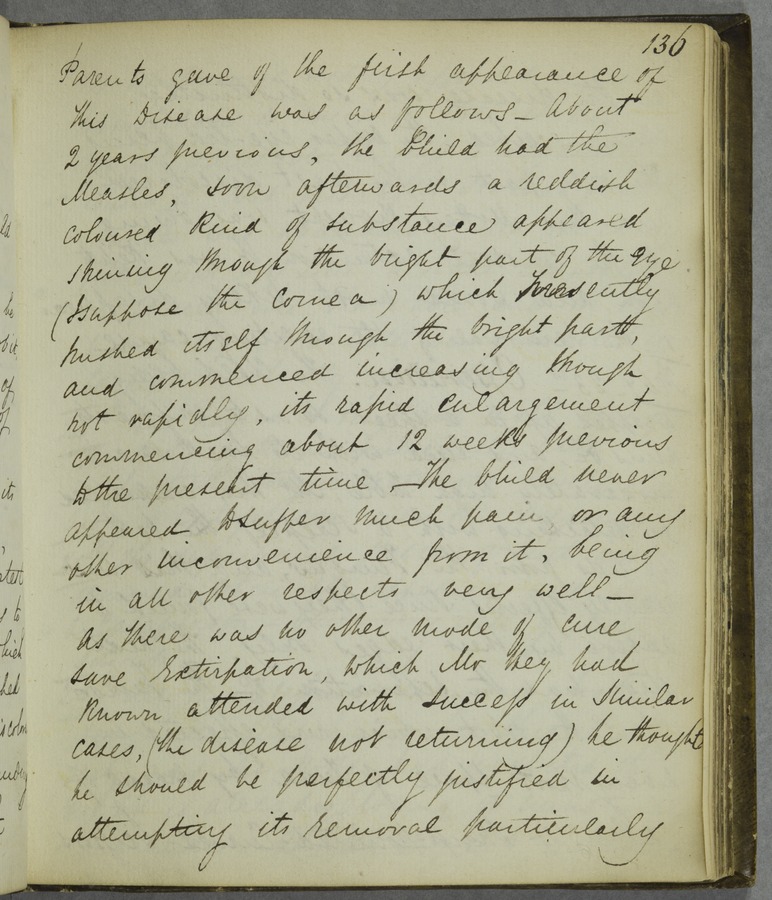 136
Parents gave of the first appearance of
this Disease was as follows_ About
2 years previous, the Child had the
Measles, soon afterwards a reddish
coloured kind of substance appeared
shining through the bright part of the eye
(I suppose the Cornea) which presently
pushed itself through the bright part,
and commenced increasing though
not rapidly, its rapid enlargement
commencing about 12 weeks previous
to the present time _ The Child never
appeared to suffer much pain or any
other inconvenience from it, being
in all other respects very well_
As there was no other mode of cure
save Extirpation, which Mr Key had
known attended with success in Similar
cases, (the disease not returning) he thought
he should be perfectly justified in
attempting its removal particularly